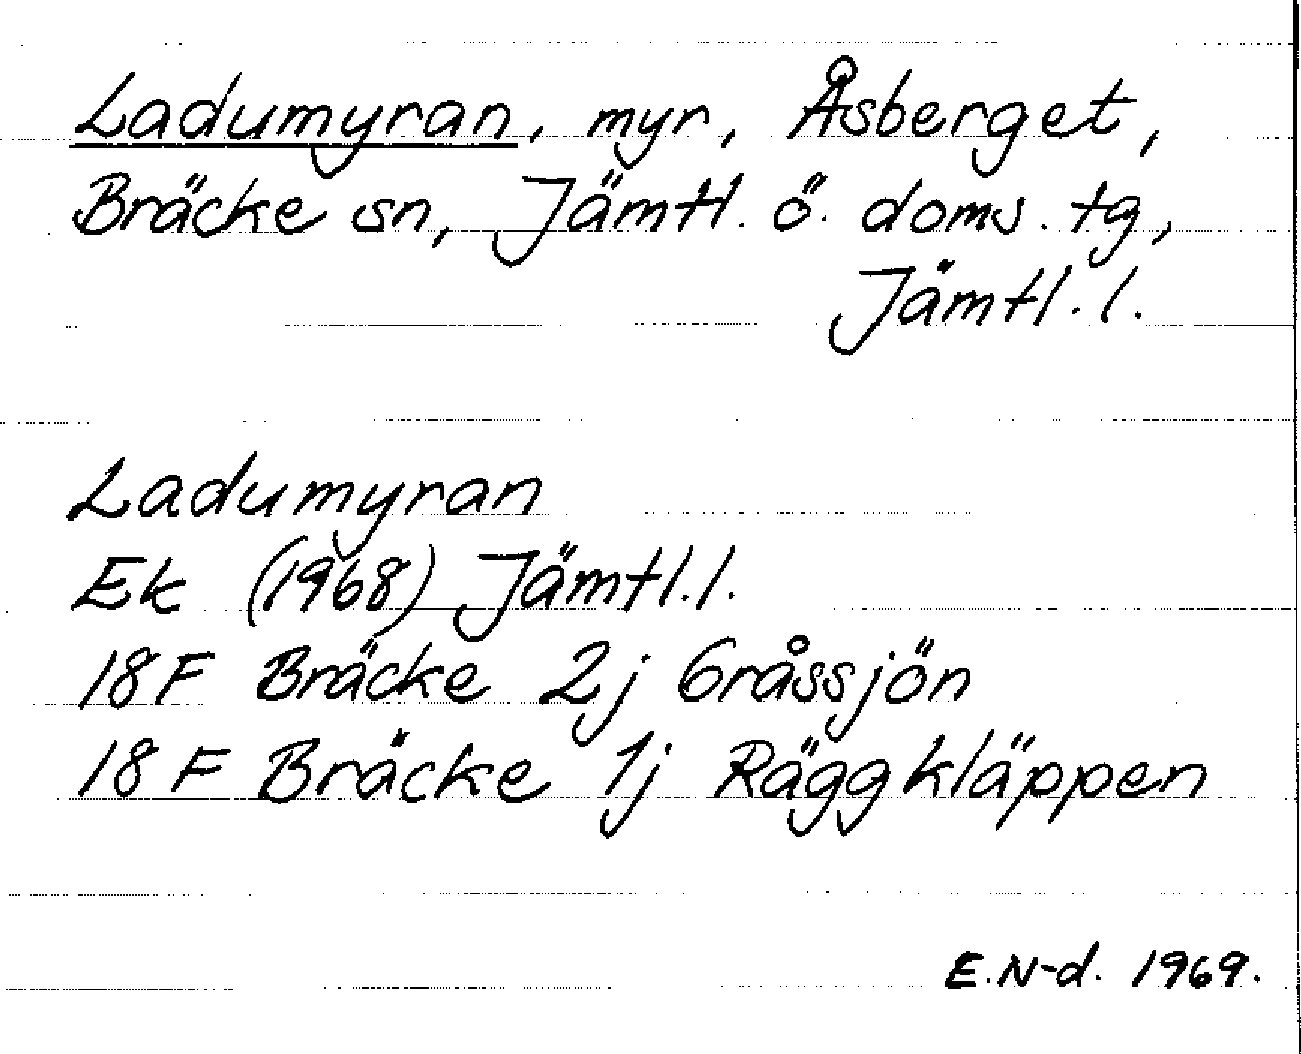 Ladumyran, myr, Åsberget,
Bräcke sn, Jämtl. ö. doms. tg,
Jämtl. l.
Ladumyran
Ek (1968) Jämtl. l.
18 F Bräcke 2j Gråssjön
18 F Bräcke 1j Räggkläppen
E. N-d. 1969.